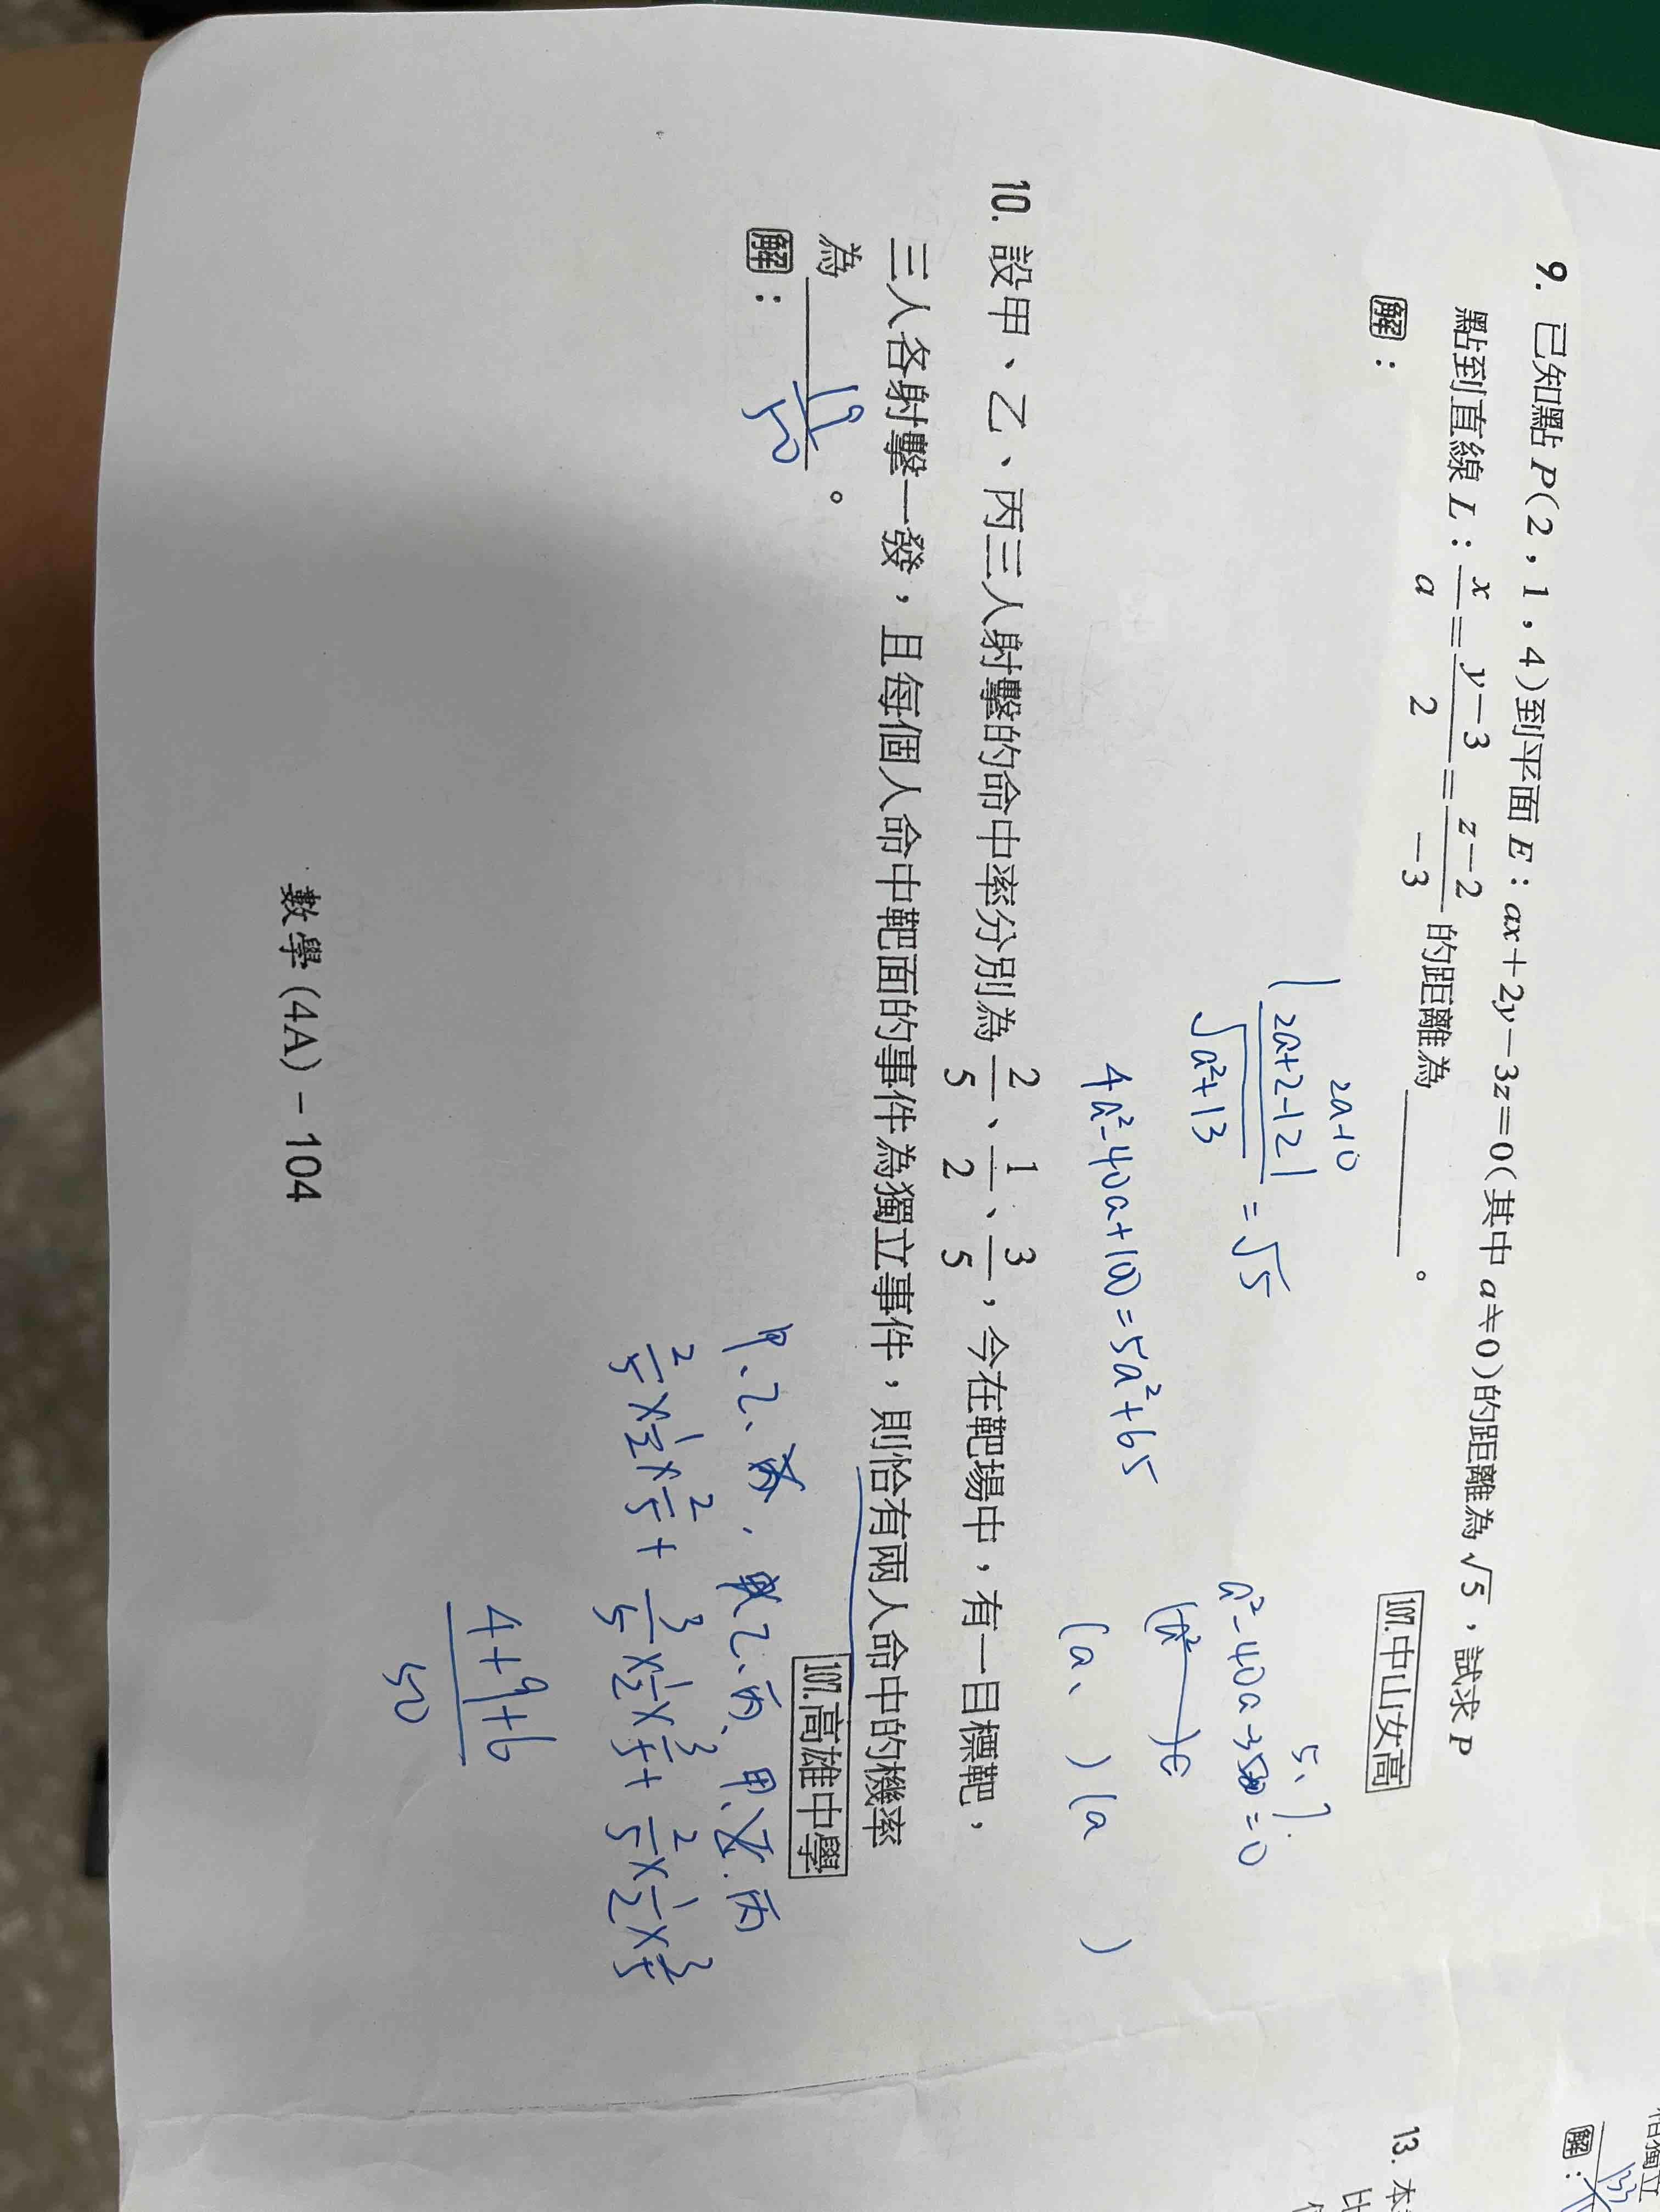 9. 已知點 P(2,1,4)到平面 E：ax+2y-3z=0(其中 a≠0)的距離為√5，試求 P
點到直線 L：x/a=(y-3)/2=(z-2)/-3 的距離為________。
107.中山女高
解：
2a-10
|2a+2-12|/√(a²+13) = √5
4a²-40a+100=5a²+65
5、7
(a、 )(a )
10. 設甲、乙、丙三人射擊的命中率分別為 2/5、1/2、3/5，今在靶場中，有一目標靶，
三人各射擊一發，且每個人命中靶面的事件為獨立事件，則恰有兩人命中的機率
為 19/50 。
107.高雄中學
解：
2/5×1/2×2/5+3/5×1/2×3/5+2/5×1/2×3/5
4+9+6/50
數學(4A)－104
13. 本
解：